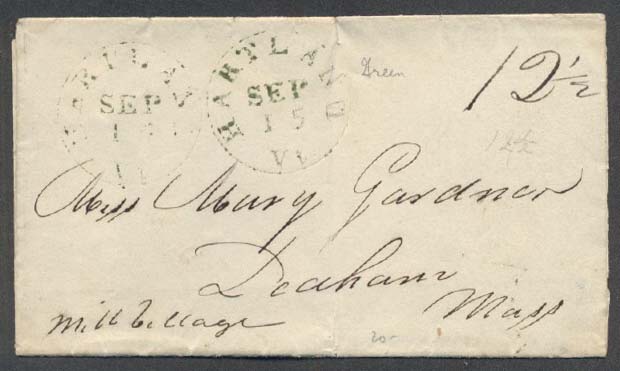 HARTLAND
SEP
15
Vt
HARTLAND
SEP
15
Vt
Green
12½
12½
Miss Mary Gardner
Dedham
Mill Village
Mass
20-